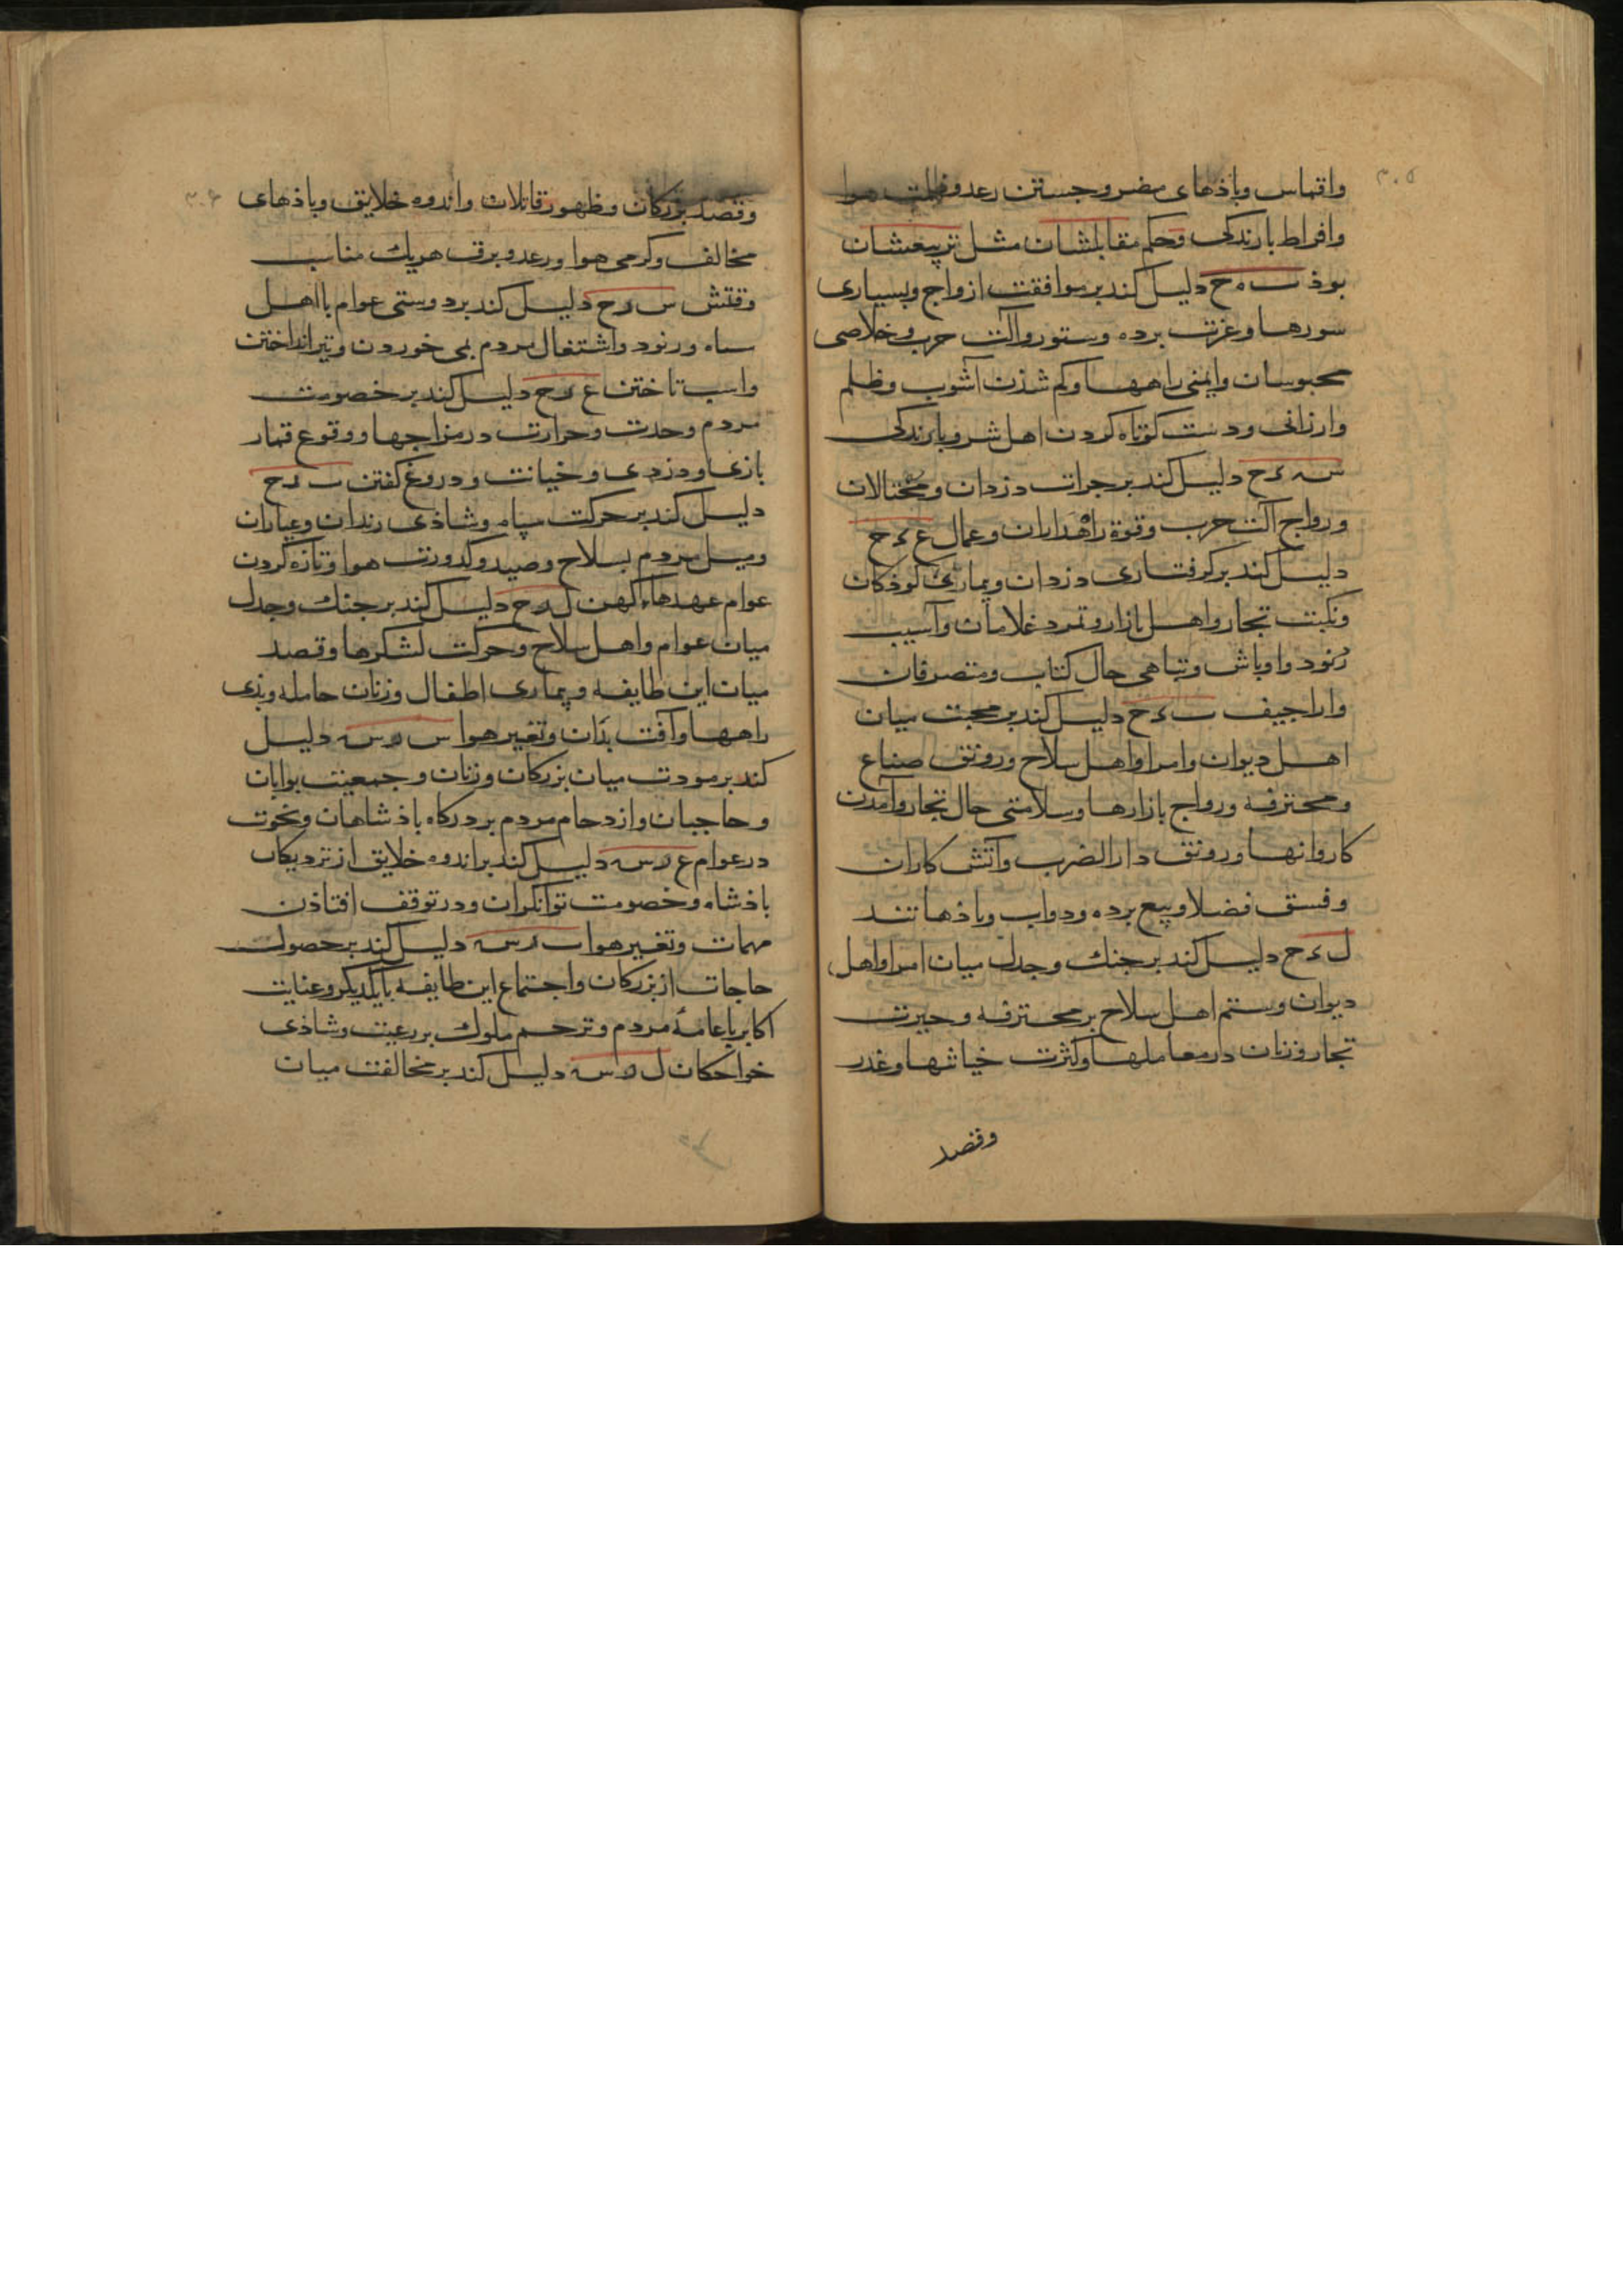 ۳۰۵
واقتباس وباذهای مضر وجستن رعد وظلمت هوا
وافراط بارندکی وحکم مقابلشان مثل تربیعشان
بوذ ت ه ح دلیل کند بر موافقت ازواج وبسیاری
سورها وعزت برده وستور وآلت حرب وخلاصی
محبوسان وایمنی راهها وکم شذن آشوب وظلم
وارزانی ودست کوتاه کردن اهل شر وبارندکی
س ء ح دلیل کند بر جرات دزدان ومحتالان
ورواج آلت حرب وقوة راهداران وعمال ع ء ح
دلیل کند بر کرفتاری دزدان وبیماری کوذکان
ونکبت تجار واهل بازار وتمرد غلامان وآسیب
رنود واوباش وتباهی حال کتاب ومتصرفان
واراجیف ت ء ح دلیل کند بر محبت میان
اهل دیوان وامرا واهل سلاح ورونق صناع
ومحترفه ورواج بازارها وسلامتی حال تجار وآمدن
کاروانها ورونق دار الضرب وآتش کاران
وفسق فضلا وبیع برده ودواب وباذها تند
ل ء ح دلیل کند بر جنک وجدل میان امرا واهل
دیوان وستم اهل سلاح بر محترفه وحیرت
تجار وزنان در معاملها وکثرت خیانتها وغدر
وقصد
۳۰۶
وقصد بزرکان وظهور قاتلان واندوه خلایق وباذهای
مخالف وکرمی هوا ورعد وبرق هریک مناسب
وقتش س ر ح دلیل کند بر دوستی عوام بااهل
سپاه ورنود واشتغال مردم بمی خوردن وتیر انداختن
واسب تاختن ع ر ح دلیل کند بر خصومت
مردم وحدت وحرارت در مزاجها ووقوع قمار
بازی ودزدی وخیانت ودروغ کفتن ت ر ح
دلیل کند بر حرکت سپاه وشاذی رندان وعیاران
ومیل مردم بسلاح وصید وکدورت هوا وتازه کردن
عوام عهدهاء کهن ل ر ح دلیل کند بر جنک وجدل
میان عوام واهل سلاح وحرکت لشکرها وقصد
میان این طایفه وبیماری اطفال وزنان حامله وبذی
راهها وآفت بذان وتغیر هوا س ه س دلیل
کند بر مودت میان بزرکان وزنان وجمعیت بوابان
وحاجبان وازدحام مردم بر درکاه باذشاهان ونخوت
در عوام ع ه س دلیل کند بر اندوه خلایق از نزدیکان
باذشاه وخصومت توانکران ودر توقف افتاذن
مهمات وتغیر هوا ت ه س دلیل کند بر حصول
حاجات از بزرکان واجتماع این طایفه بایکدیکر وعنایت
اکابر با عامهٔ مردم وترحم ملوک بر رعیت وشاذی
خواجکان ل ه س دلیل کند بر مخالفت میان